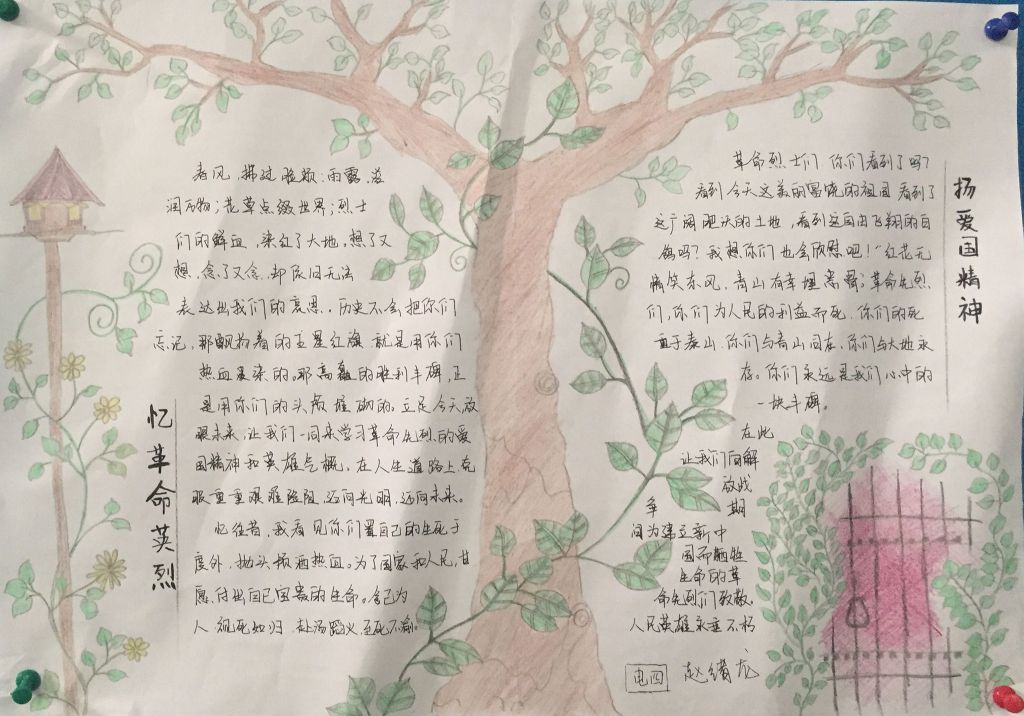 忆革命英烈
春风拂过脸颊,雨露滋
润万物;花草点缀世界;烈士
们的鲜血,染红了大地,想了又
想,念了又念,却依旧无法
表达出我们的哀思。历史不会把你们
忘记,那飘扬着的五星红旗就是用你们
热血浸染的。那高巍的胜利丰碑,正
是用你们的头颅堆砌的。立足今天放
眼未来,让我们一同来学习革命先烈的爱
国精神和英雄气概,在人生道路上克
服重重艰难险阻,迈向光明,迈向未来。
忆往昔,我看见你们置自己的生死于
度外,抛头颅洒热血。为了国家和人民,甘
愿付出自己宝贵的生命。舍己为
人 视死如归 赴汤蹈火,至死不渝。
扬爱国精神
革命烈士们 你们看到了吗?
看到今天这美丽富饶的祖国 看到了
这广阔肥沃的土地,看到这自由飞翔的白
鸽吗?我想你们也会欣慰吧!“红花无
笑东风,青山有幸埋;革命先烈
们,你们为人民的利益而死,你们的死
重于泰山,你们与青山同在,你们与大地永
存。你们永远是我们心中的
一块丰碑。
在此
让我们向解
放战
争 期
间为建立新中
国而牺牲
生命的革
命先烈们致敬。
人民英雄永垂不朽
电四 赵绪龙